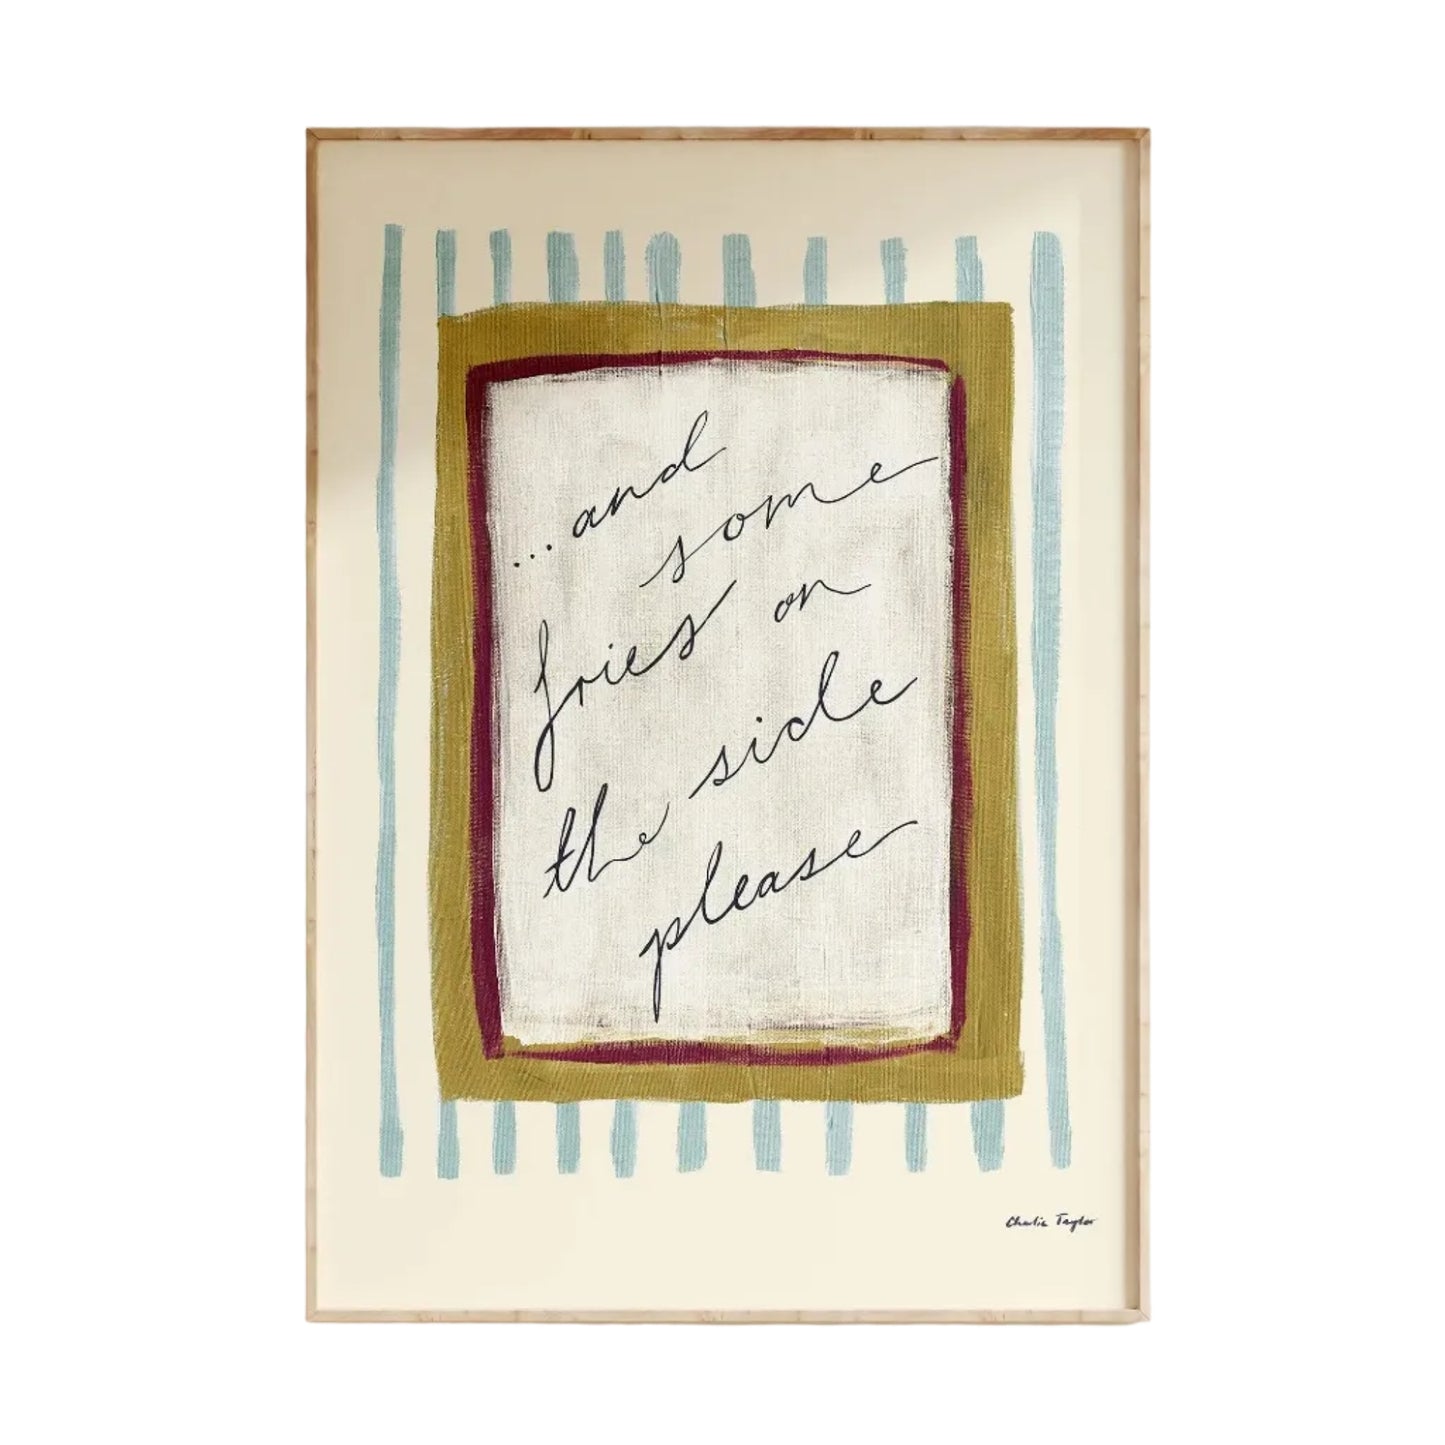 ...and
some
fries on
the side
please
Charlie Taylor